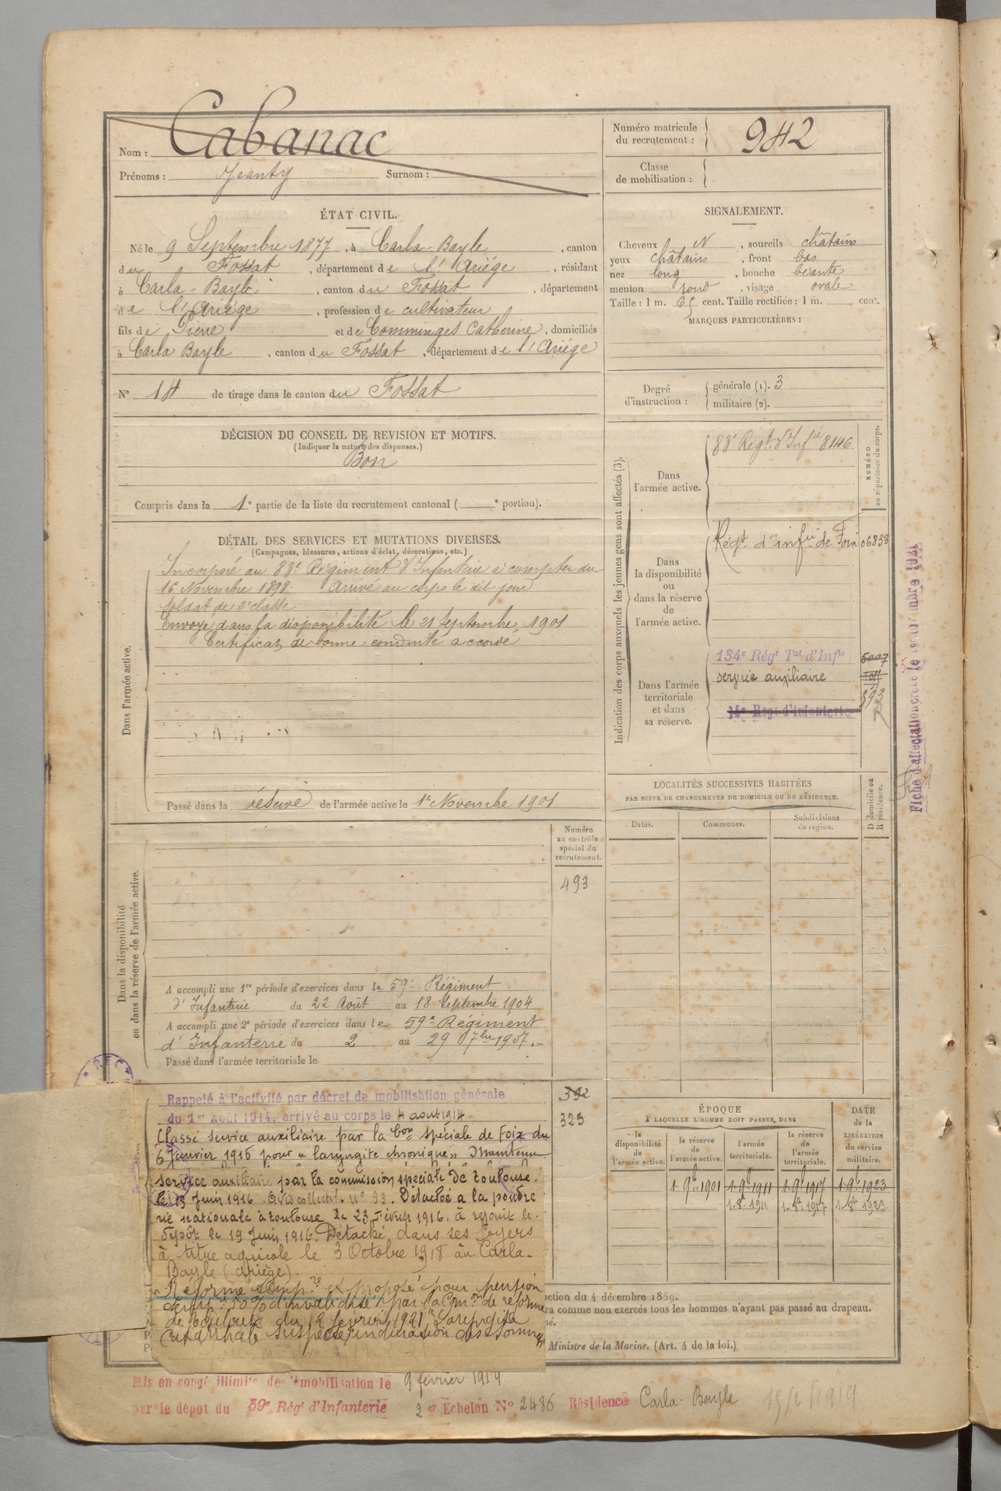 Nom : Cabanac
Prénoms : Jeanty Surnom :
Numéro matricule
du recrutement : 942
Classe
de mobilisation :
ÉTAT CIVIL.
Né le 9 Septembre 1877, à Carla-Bayle, canton
du Fossat, département de l'Ariége, résidant
à Carla-Bayle, canton du Fossat, département
de l'Ariége, profession de cultivateur
fils de Pierre et de Comminges Catherine, domiciliés
à Carla Bayle, canton du Fossat, département de l'Ariége
N° 14 de tirage dans le canton du Fossat
SIGNALEMENT.
Cheveux N, sourcils châtains
yeux châtains, front bas
nez long, bouche béante
menton rond, visage ovale
Taille : 1 m. cent. Taille rectifiée : 1 m. cent.
MARQUES PARTICULIÈRES :
Degré
d'instruction :
générale (1). 3
militaire (2).
DÉCISION DU CONSEIL DE REVISION ET MOTIFS.
(Indiquer la nature des dispenses.)
Bon
Compris dans la 1e partie de la liste du recrutement cantonal ( e portion).
DÉTAIL DES SERVICES ET MUTATIONS DIVERSES.
(Campagnes, blessures, actions d'éclat, décorations, etc.)
Dans l'armée active.
Incorporé au 83e Régiment d'Infanterie à compter du
16 Novembre 1898. Arrivé au corps le dit jour
soldat de 2e classe
Envoyé dans la disponibilité le 21 Septembre 1901
Certificat de bonne conduite accordé
Passé dans la réserve de l'armée active le 1er Novembre 1901
Indication des corps auxquels les jeunes gens sont affectés (3).
NUMÉRO
au répertoire du corps.
Dans
l'armée active.
83e Régt d'Infie 8146
Dans
la disponibilité
ou
dans la réserve
de
l'armée active.
Régt d'infie de Foix 06838
Dans l'armée
territoriale
et dans
sa réserve.
134e Régt Tal d'Infie
service auxiliaire
14e Régt d'Infanterie
Fiche d'affectation
LOCALITÉS SUCCESSIVES HABITÉES
PAR SUITE DE CHANGEMENTS DE DOMICILE OU DE RÉSIDENCE.
Dates. Communes. Subdivisions
de région.
D domicile ou
R résidence.
Numéro
au contrôle
spécial du
recrutement.
493
Dans la disponibilité
ou dans la réserve de l'armée active.
A accompli une 1re période d'exercices dans le 59e Régiment
d'Infanterie du 22 Août au 18 Septembre 1904
A accompli une 2e période d'exercices dans le 59e Régiment
d'Infanterie du 2 au 29 7bre 1907.
Passé dans l'armée territoriale le
Rappelé à l'activité par décret de mobilisation générale
du 1er Août 1914, arrivé au corps le 4 aout 1914
325
Classé service auxiliaire par la Con spéciale de Foix du
6 janvier 1916 pour « laryngite chronique » Maintenu
service auxiliaire par la commission spéciale de Toulouse.
le 13 Juin 1916. avis collectif n° 93. Détaché à la poudre
rie nationale à Toulouse le 23 Février 1916. à rejoint le
dépôt le 19 Juin 1916. Détaché dans ses foyers
à titre agricole le 3 Octobre 1918 au Carla-
Bayle (Ariége).
Réformé temp.re et proposé pour pension
temp. 30% d'invalidité par la Com.on de réforme
de Toulouse du 12 février 1921, Laryngite
catarrhale suspecte, induration des sommets
ÉPOQUE
À LAQUELLE L'HOMME DOIT PASSER DANS
DATE
DE LA
LIBÉRATION
DU SERVICE
MILITAIRE.
la
disponibilité
de
l'armée active.
la réserve
de
l'armée active.
l'armée
territoriale.
la réserve
de
l'armée
territoriale.
1 9bre 1901 1 9bre 1911 1 9bre 1917 1 9bre 1923
ction du 4 décembre 1889.
ra comme non exercés tous les hommes n'ayant pas passé au drapeau.
Ministre de la Marine. (Art. 4 de la loi.)
Mis en congé illimité de démobilisation le 9 février 1919
par le dépôt du 59e Régt d'Infanterie 2e Echelon N° 2486 Résidence Carla-Bayle